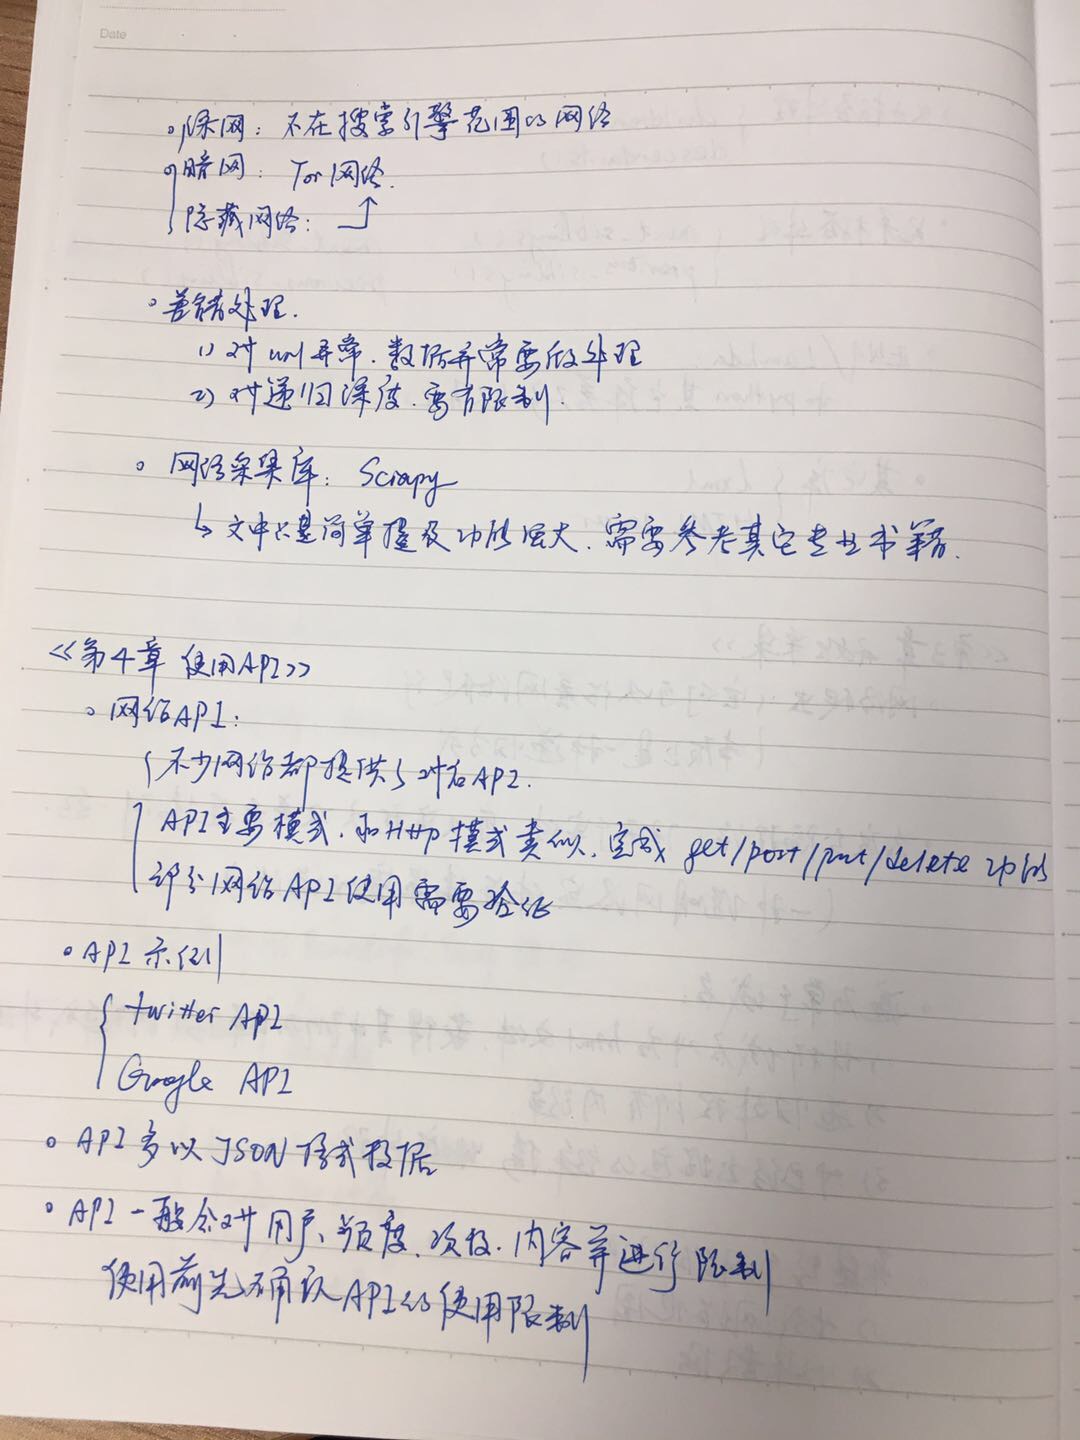 Date
。深网：不在搜索引擎范围的网络
。暗网：Tor网络.
隐藏网络：
。差错处理.
1) 对url异常.数据异常要做处理
2) 对递归深度.需有限制.
。网络采集库：Scrapy
↳ 文中只是简单提及功能强大.需要参考其它专业书籍.
《第4章 使用API》
。网络API：
不少网络都提供了对应API.
API主要模式.和Http模式类似.完成get/post/put/delete功能
部分网络API使用需要验证
。API示例
twitter API
Google API
。API多以JSON格式数据
。API一般会对用户、频度、内容等进行限制
使用前先确认API的使用限制